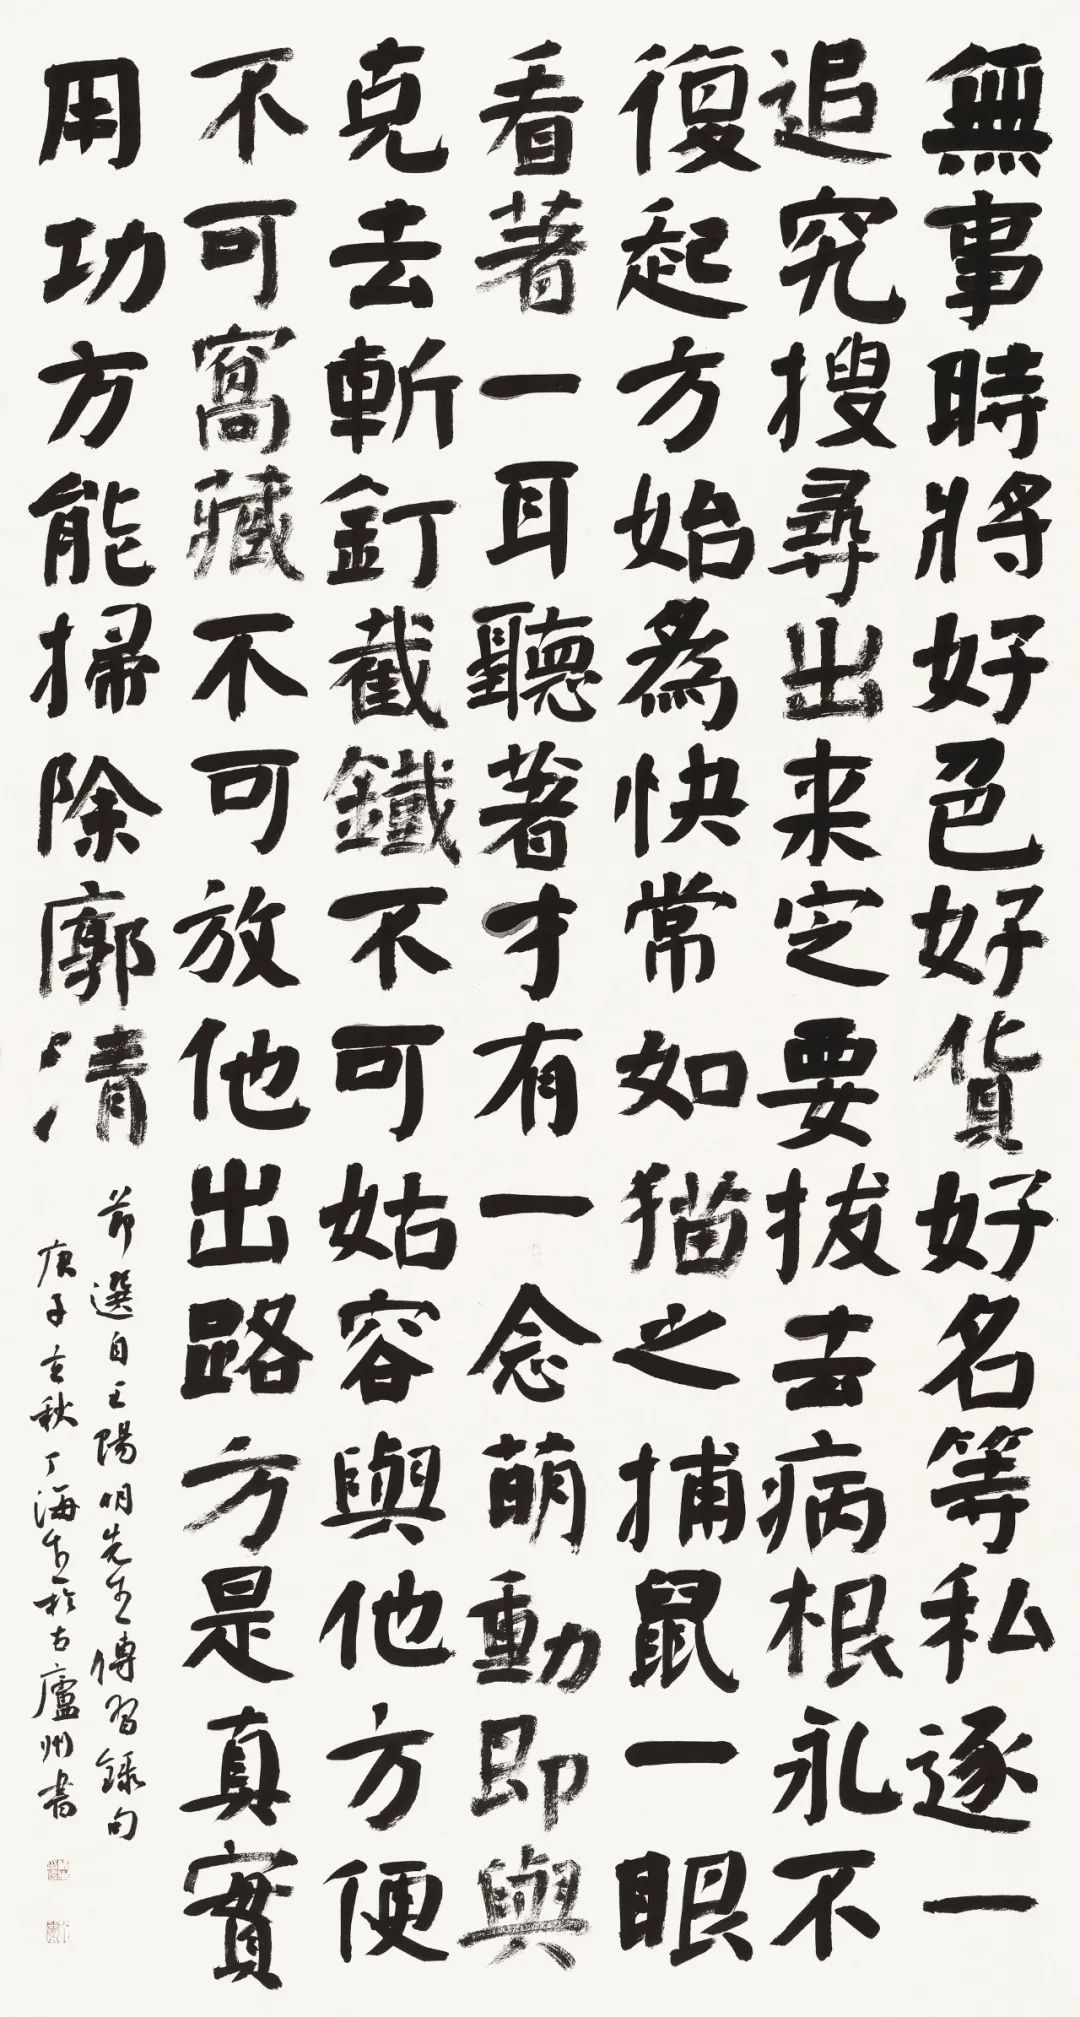 無事時將好色好貨好名等私逐一
追究搜尋出来定要拔去病根永不
復起方始為快常如猫之捕鼠一眼
看著一耳聽著才有一念萌動即與
克去斬釘截鐵不可姑容與他方便
不可窩藏不可放他出路方是真實
用功方能掃除廓清
節選自王陽明先生傳習錄句
庚子立秋丁海生於古廬州書